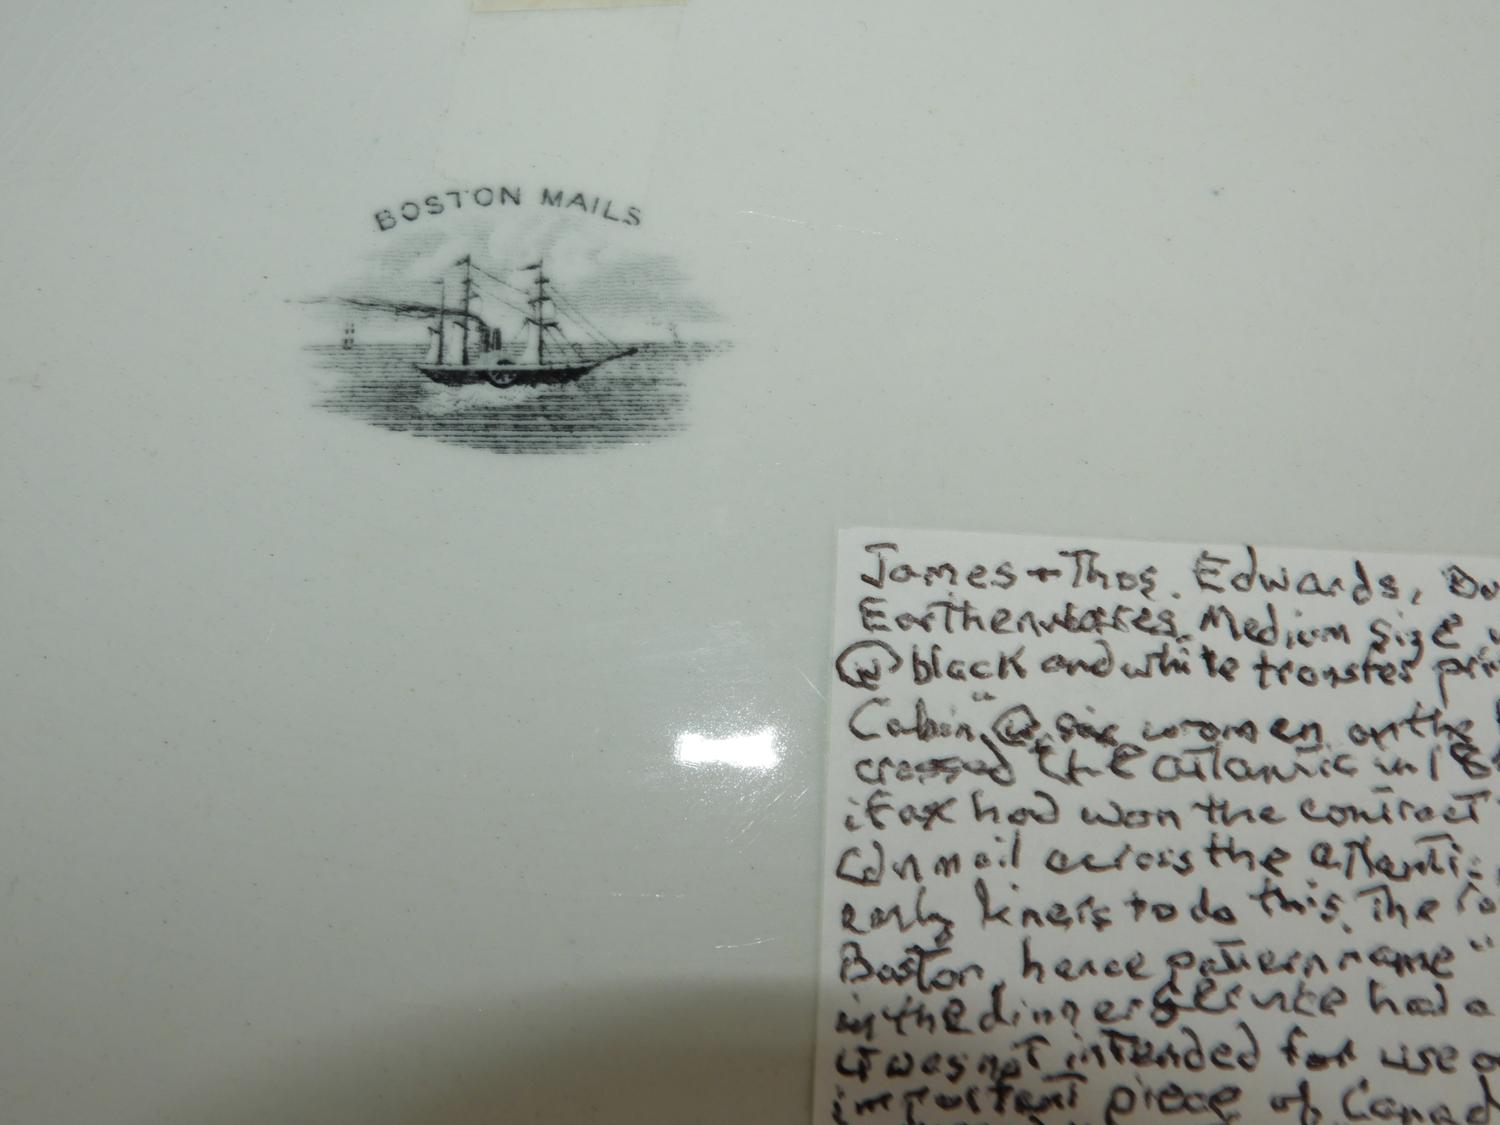 BOSTON MAILS
James + Thos. Edwards,
Earthenwares. Medium size
black and white transfer
"Cabin" six women on the
crossed the atlantic in 18
ifax had won the contract
Cdn mail across the atlantic
early liners to do this. The
Boston, hence pattern name "
in the dinner service had a
it was not intended for use
important piece of Canad